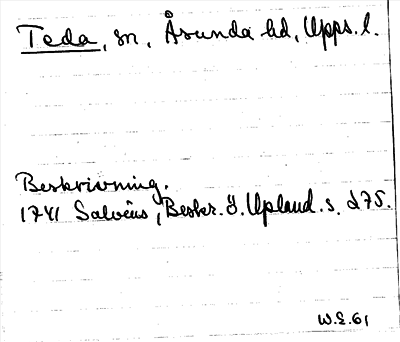 Teda, sn, Åsunda hd, Upps. l.
Beskrivning.
1741 Salvius, Beskr. ö. Upland. s. 275.
W.E. 61